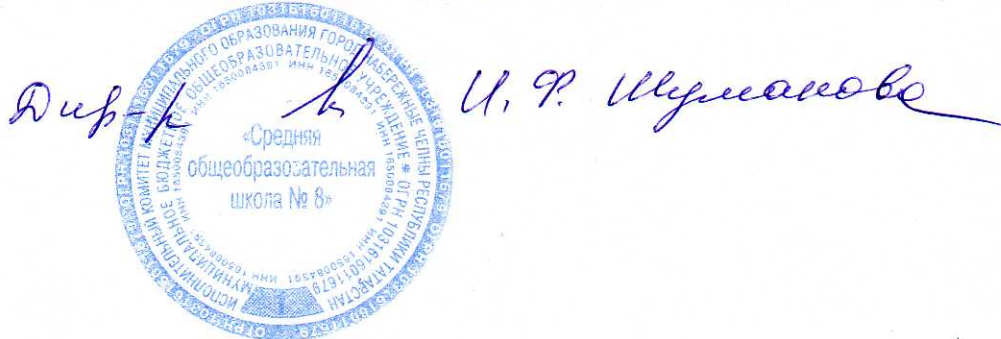 Дир-р И. Ф. Шуманова
ИСПОЛНИТЕЛЬНЫЙ КОМИТЕТ МУНИЦИПАЛЬНОГО ОБРАЗОВАНИЯ ГОРОД НАБЕРЕЖНЫЕ ЧЕЛНЫ РЕСПУБЛИКИ ТАТАРСТАН
МУНИЦИПАЛЬНОЕ БЮДЖЕТНОЕ ОБЩЕОБРАЗОВАТЕЛЬНОЕ УЧРЕЖДЕНИЕ * ОГРН 1031616011679
ИНН 1650084391
«Средняя
общеобразовательная
школа № 8»
1